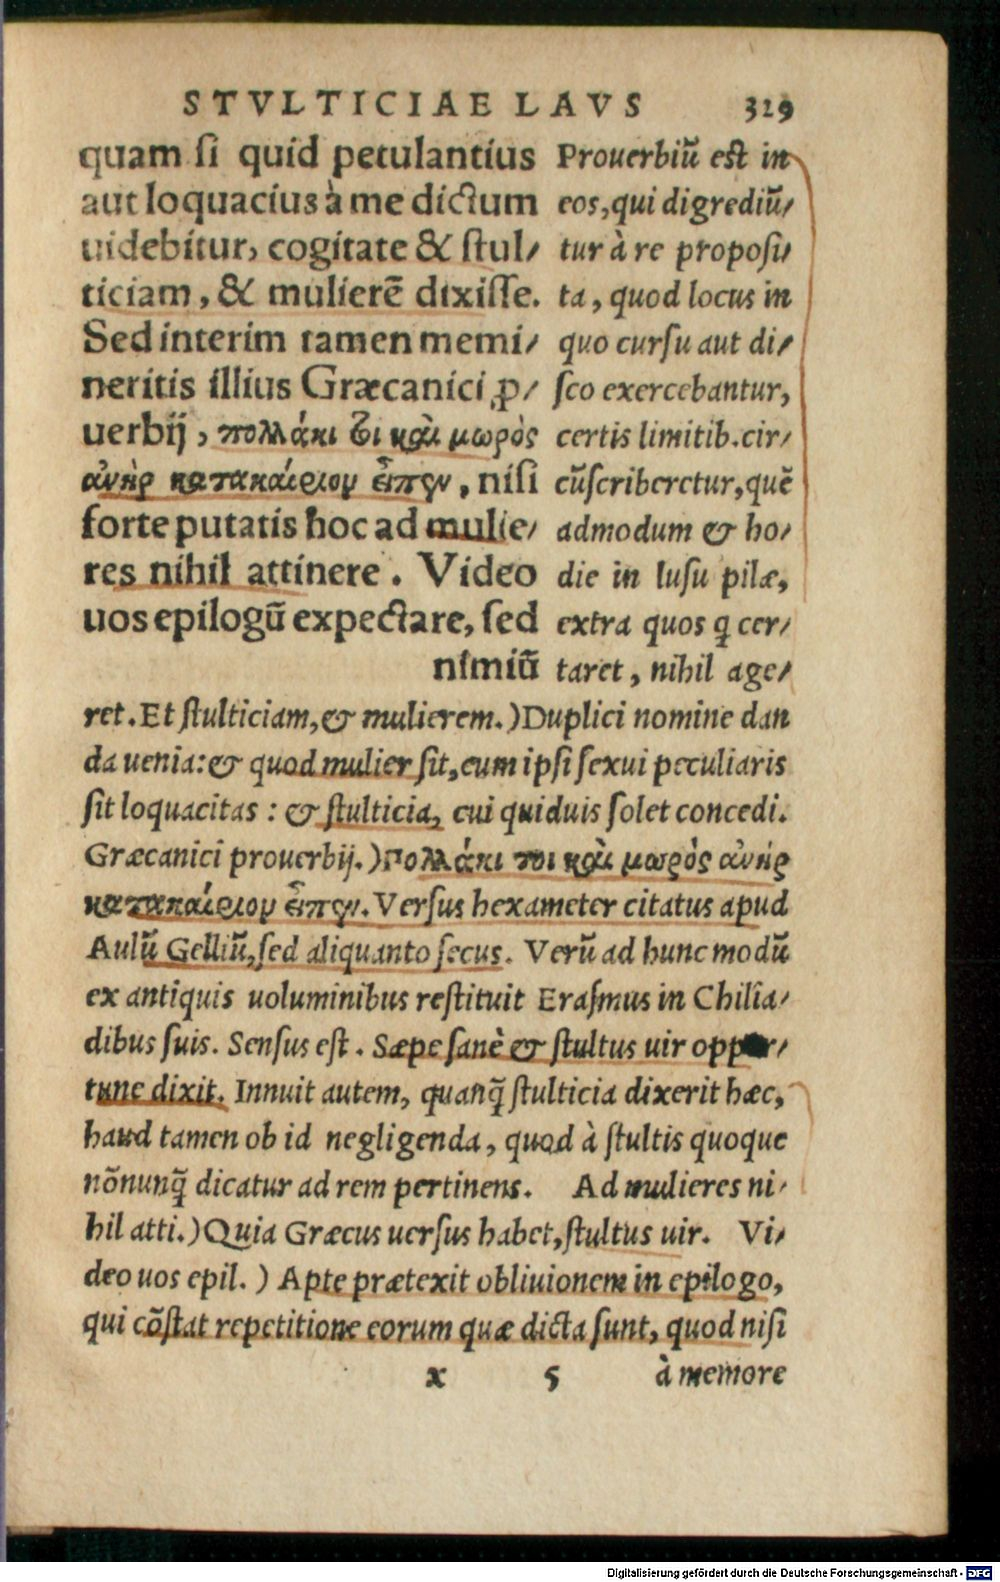 STVLTICIAE LAVS 329
quam si quid petulantius
aut loquacius à me dictum
uidebitur, cogitate & stul/
ticiam, & mulierē dixisse.
Sed interim tamen memi/
neritis illius Græcanici ꝓ/
uerbij, πολλάκι τοι καὶ μωρὸς
ἀνὴρ κατακαίριον εἶπεν, nisi
forte putatis hoc ad mulie/
res nihil attinere. Video
uos epilogū expectare, sed
nimiū
Prouerbiū est in
eos, qui digrediū/
tur à re proposi/
ta, quod locus in
quo cursu aut di/
sco exercebantur,
certis limitib. cir/
cūscriberetur, quē
admodum & ho/
die in lusu pilæ,
extra quos q̃ cer/
taret, nihil age/
ret. Et stulticiam, & mulierem.) Duplici nomine dan
da uenia: & quod mulier sit, cum ipsi sexui peculiaris
sit loquacitas: & stulticia, cui quiduis solet concedi.
Græcanici prouerbij.) Πολλάκι τοι καὶ μωρὸς ἀνὴρ
κατακαίριον εἶπεν. Versus hexameter citatus apud
Aulū Gelliū, sed aliquanto secus. Verū ad hunc modū
ex antiquis uoluminibus restituit Erasmus in Chilia/
dibus suis. Sensus est. Sæpe sanè & stultus uir oppor/
tune dixit. Innuit autem, quanq̃ stulticia dixerit hæc,
haud tamen ob id negligenda, quod à stultis quoque
nōnunq̃ dicatur ad rem pertinens. Ad mulieres ni/
hil atti.) Quia Græcus uersus habet, stultus uir. Vi/
deo uos epil.) Apte prætexit obliuionem in epilogo,
qui cōstat repetitione eorum quæ dicta sunt, quod nisi
x 5 à memore
Digitalisierung gefördert durch die Deutsche Forschungsgemeinschaft - DFG